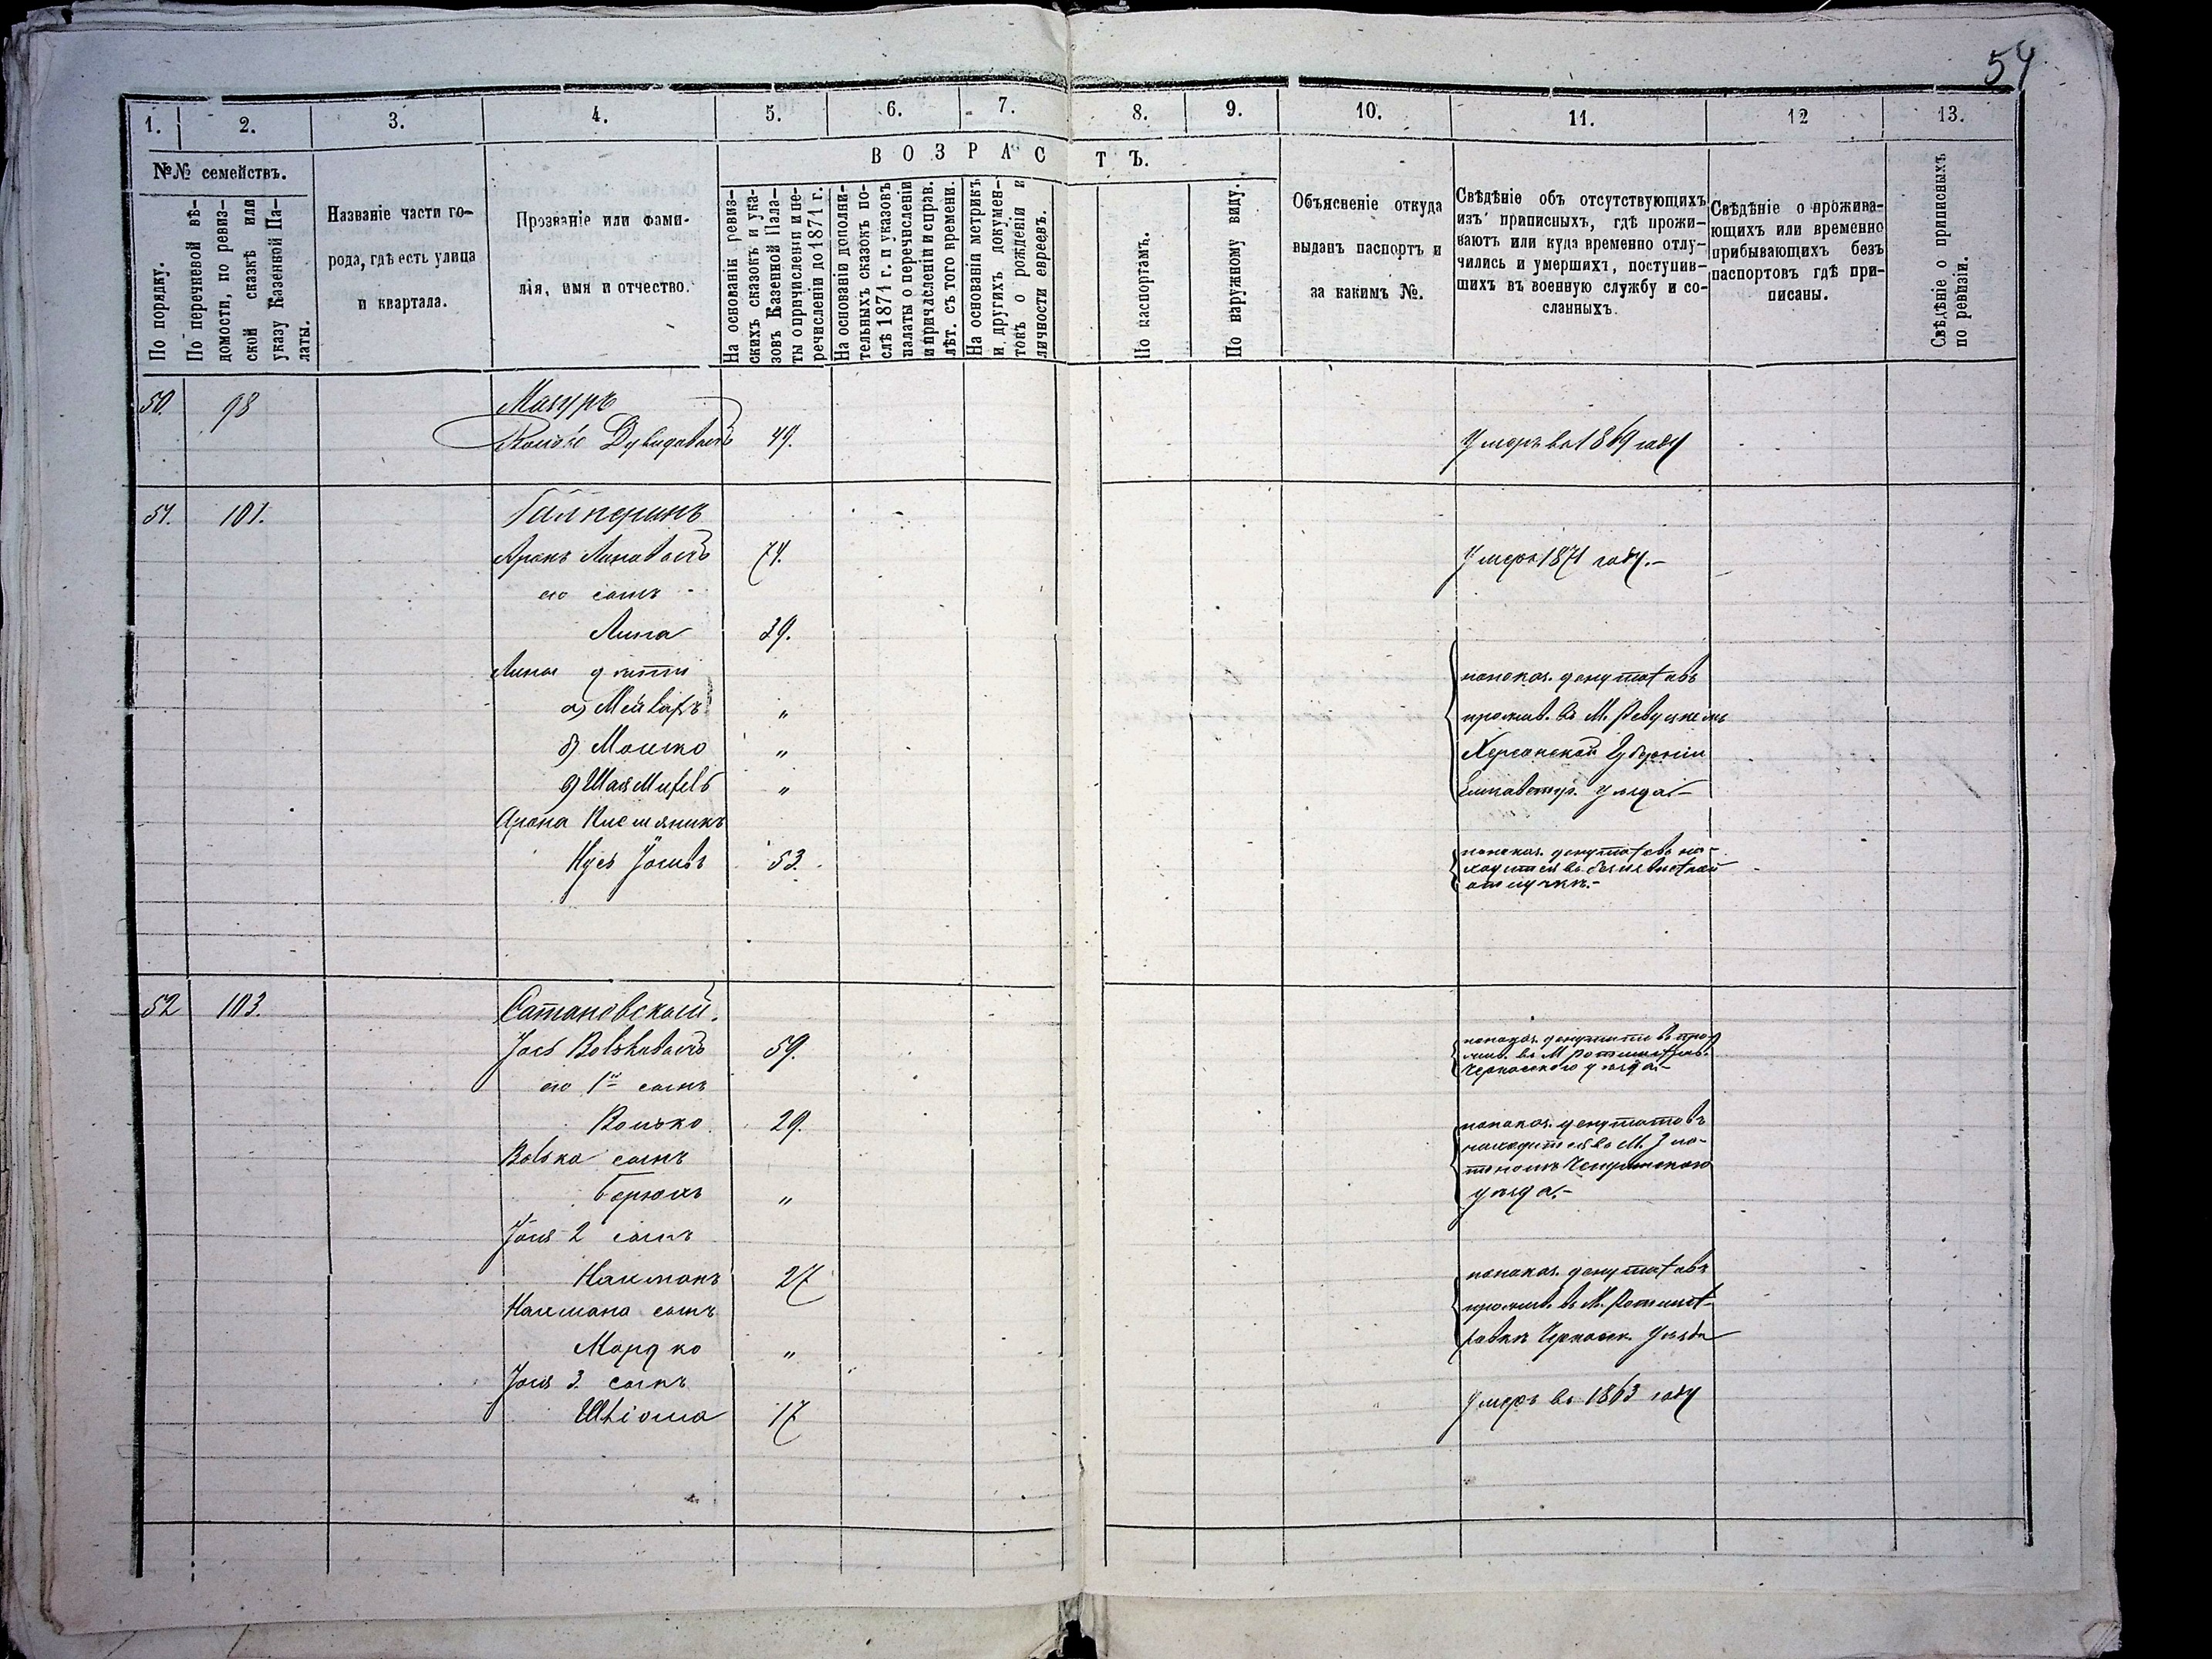 54
1. 2. 3. 4. 5. 6. 7. 8. 9. 10. 11. 12 13.
№№ семействъ.
По порядку.
По перечневой вѣ-
домости, по ревиз-
ской сказкѣ или
указу Казенной Па-
латы.
Названіе части го-
рода, гдѣ есть улица
и квартала.
Прозваніе или фами-
лія, имя и отчество.
ВОЗРАСТЪ.
На основаніи ревиз-
скихъ сказокъ и ука-
зовъ Казенной Пала-
ты о причисленіи и пе-
речисленіи до 1871 г.
На основаніи дополни-
тельныхъ сказокъ по-
слѣ 1871 г. и указовъ
палаты о перечисленіи
и причисленіи и справ.
лѣт. съ того времени.
На основаніи метрикъ
и другихъ докумен-
товъ о рожденіи и
личности евреевъ.
По паспортамъ.
По наружному виду.
Объясненіе откуда
выданъ паспортъ и
за какимъ №.
Свѣдѣніе объ отсутствующихъ
изъ приписныхъ, гдѣ прожи-
ваютъ или куда временно отлу-
чились и умершихъ, поступив-
шихъ въ военную службу и со-
сланныхъ.
Свѣдѣніе о прожива-
ющихъ или временно
прибывающихъ безъ
паспортовъ гдѣ при-
писаны.
Свѣдѣніе о приписныхъ
по ревизіи.
50. 98 Мазуръ
Дувидовичъ 49. Умеръ въ 1869 году
51. 101. Галперинъ
Аронъ Липовичъ 74. Умеръ 1871 году.-
его сынъ
Липа 39.
Липы дѣти показ. депутатовъ
а) Мейларъ " прожив. въ М. Ревуцкомъ
б) Мошко " Херсонской Губерніи
в) Шая " Елисаветгр. уѣзда-
Арона Племяникъ
Нусъ 53. показ. депутатовъ на-
ходится въ безизвѣстной
отлучкѣ.-
52 103. Сатановскій.
Іось Вольковичъ 59. показ. депутатовъ про-
жив. въ М Ротмистров.
Черкасского уѣзда.-
его 1й сынъ
Волько 29. показ. депутатовъ
находится въ М. Зла-
тополѣ Чигиринского
уѣзда.-
Волька сынъ
Борухъ "
Іося 2 сынъ
Нахманъ 27 показ. депутатовъ
Нахмана сынъ прожив. въ М. Ротмист-
Мордко " ровкѣ Черкасск. Уѣзда
Іося 3. сынъ
Шліома 17 Умеръ въ 1863 году